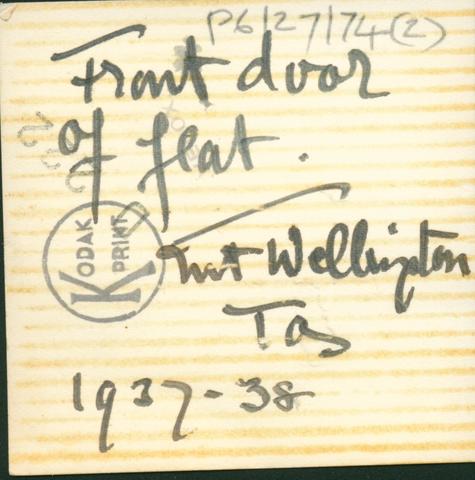 P6/27/74(2)
Front door
of flat.
KODAK
PRINT
Mt Wellington
Tas
1937-38